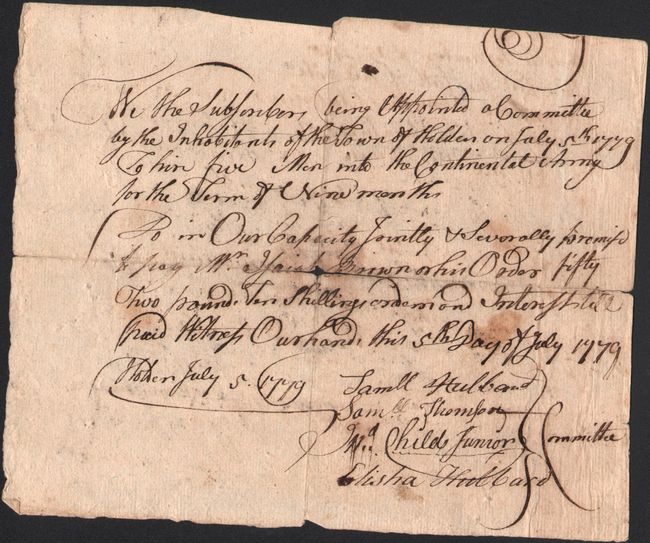 We the Subscribers being Appointed a Committee
by the Inhabitants of the Town of Holden on July 5th 1779
To hire five Men into the Continental Army
for the Term of Nine months
Do in Our Capacity Jointly & Severally promise
to pay Mr. Isaiah Brown or his Order fifty
Two pounds Ten Shillings on demand Interest till
paid Witness Our hands this 5th Day of July 1779
Holden July 5. 1779
Samll Hubbard
Samll Thompson
Childs Junior
Committee
Elisha Hubbard